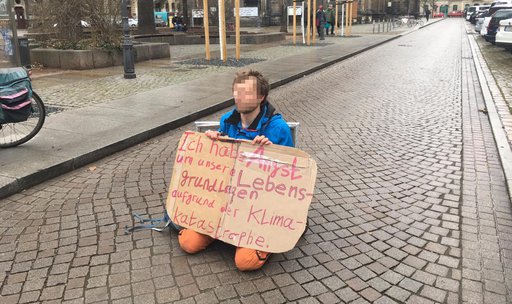 Ich habe Angst
um unsere
grundlagen Lebens-
aufgrund der Klima-
katastrophe.